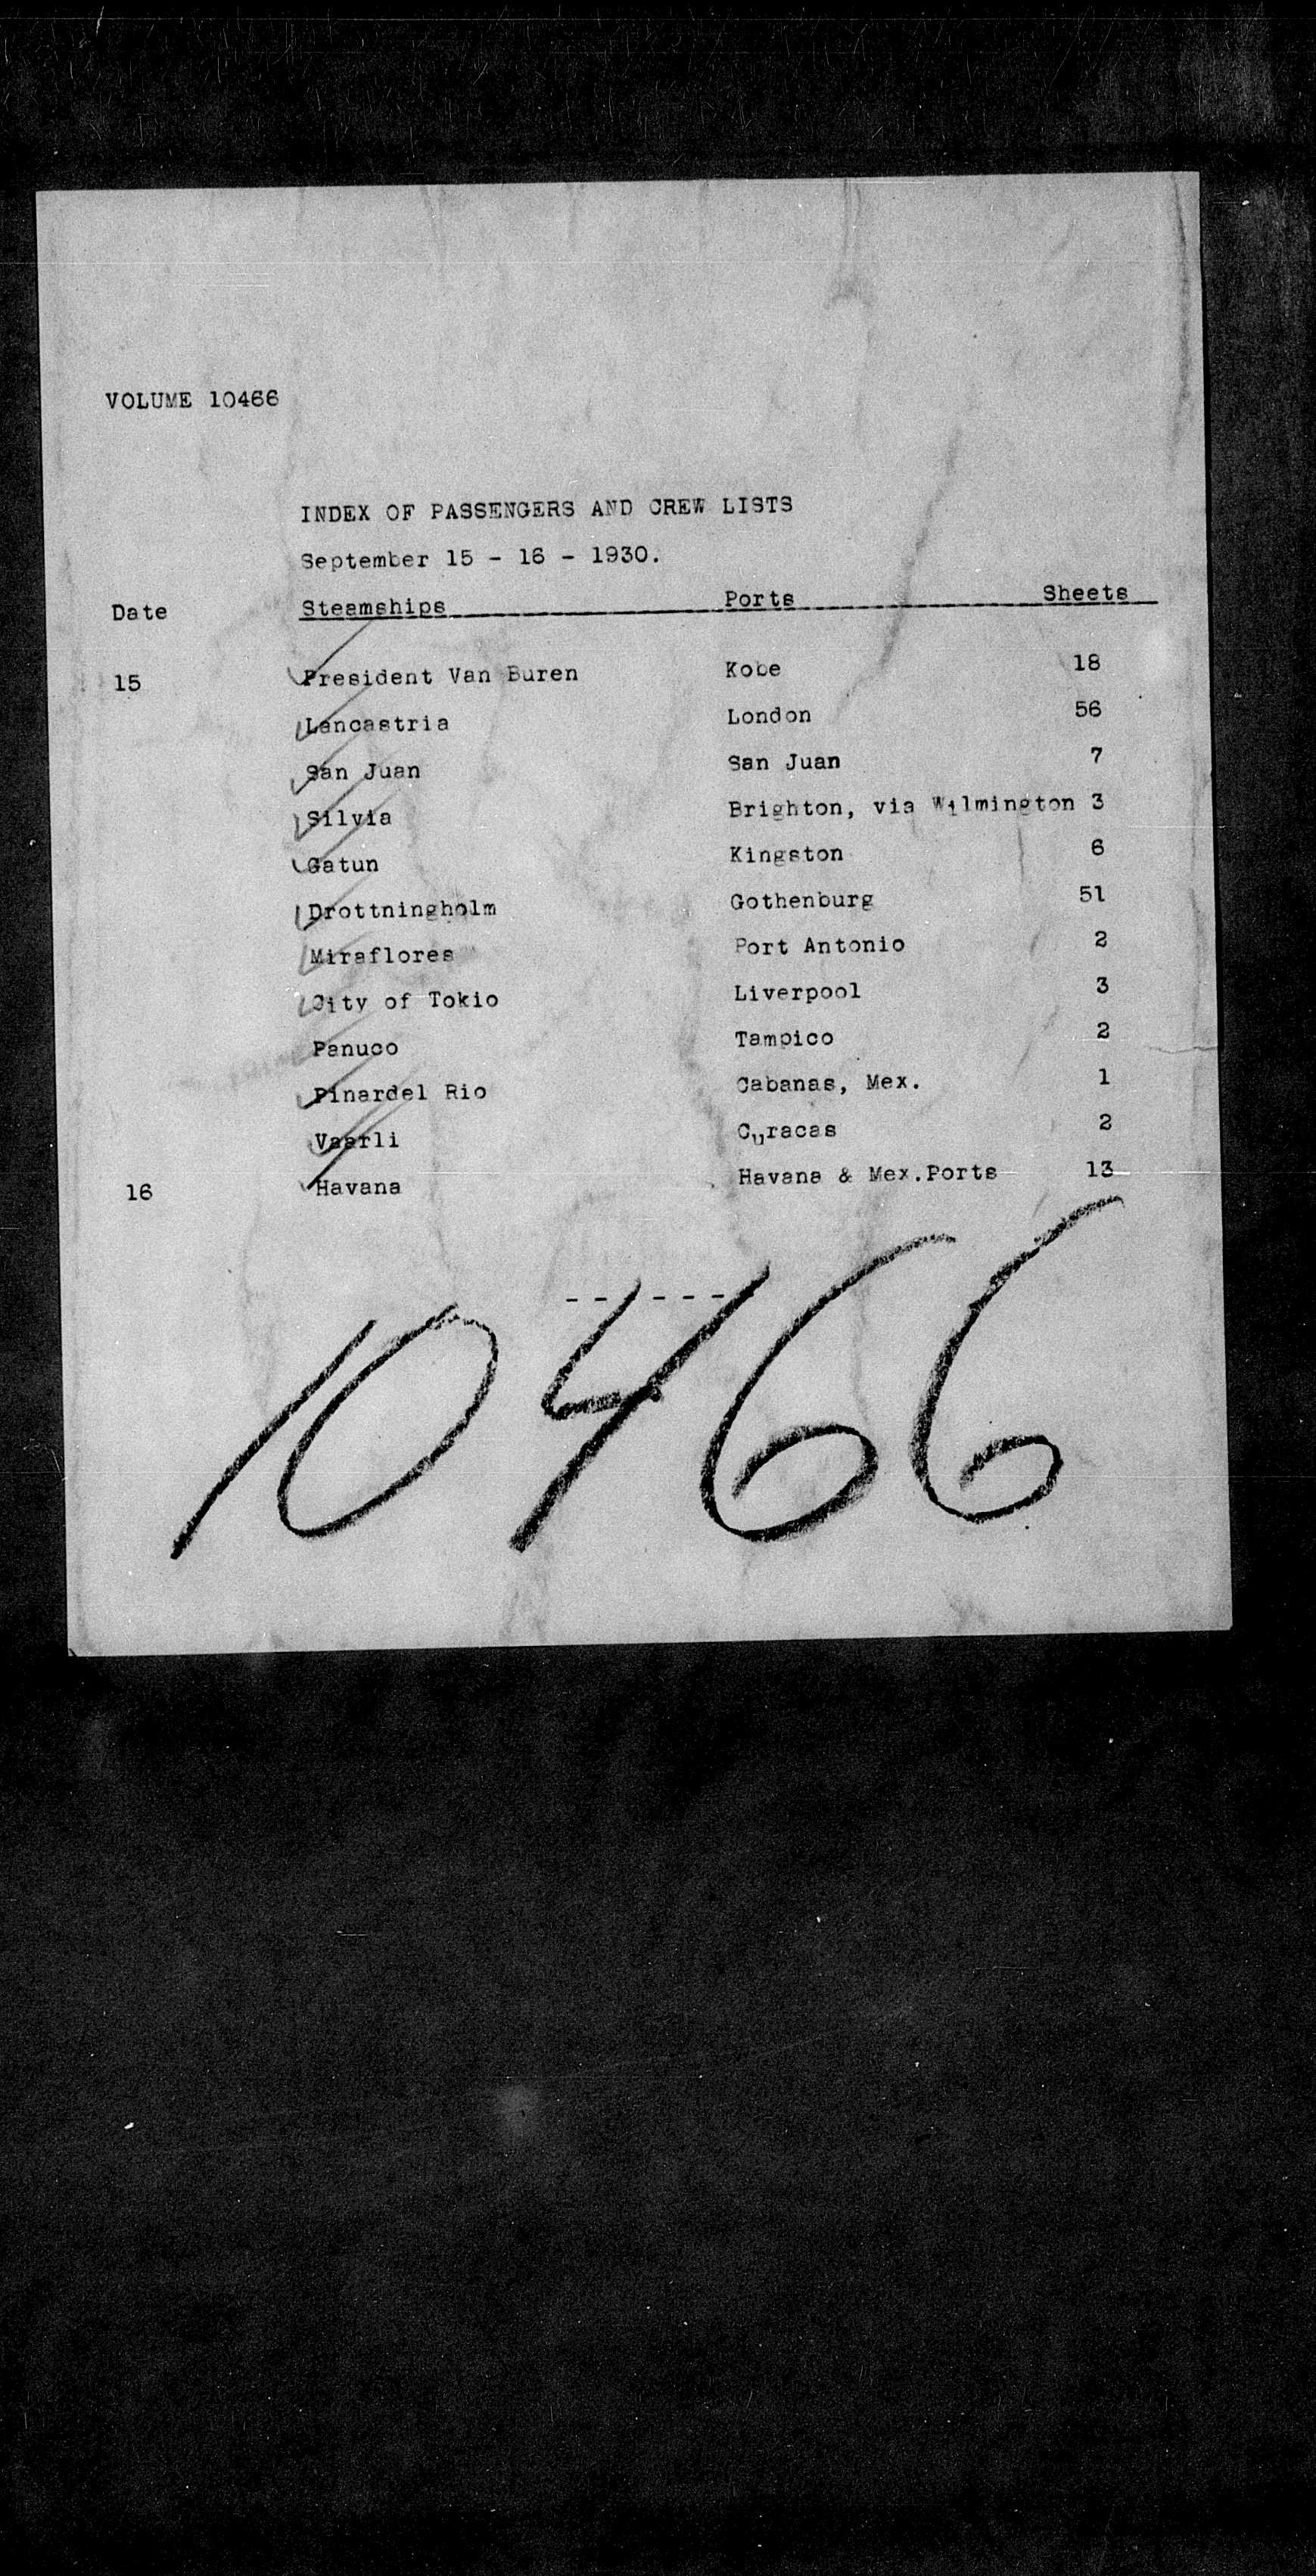 VOLUME 10466
INDEX OF PASSENGERS AND CREW LISTS
September 15 - 16 - 1930.
Date Steamships Ports Sheets
15 President Van Buren Kobe 18
Lancastria London 56
San Juan San Juan 7
Silvia Brighton, via Wilmington 3
Gatun Kingston 6
Drottningholm Gothenburg 51
Miraflores Port Antonio 2
City of Tokio Liverpool 3
Panuco Tampico 2
Pinardel Rio Cabanas, Mex. 1
Vaarli Curacas 2
16 Havana Havana & Mex.Ports 13
- - - - - -
10466